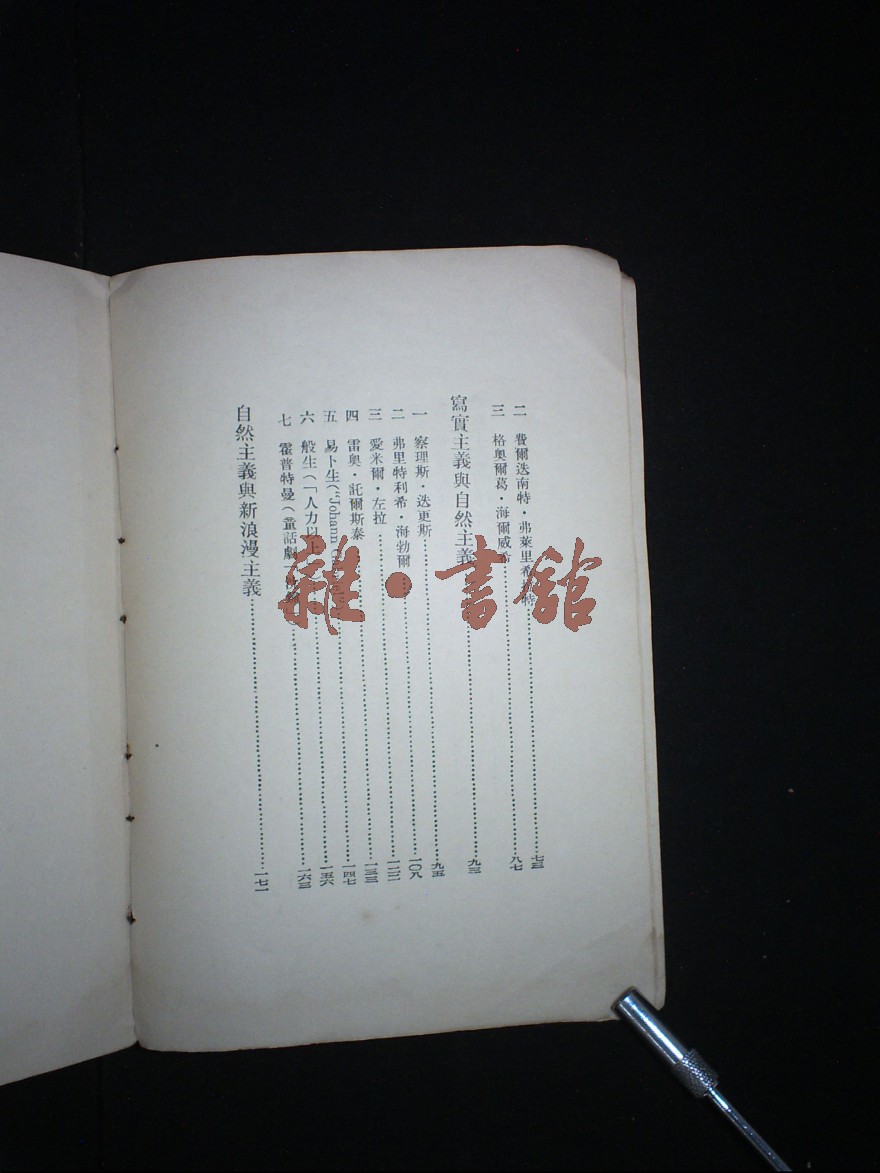 二 費爾迭南特・弗萊里希特……七三
三 格奧爾葛・海爾威希……八七
寫實主義與自然主義……九三
一 察理斯・迭更斯……九五
二 弗里特利希・海勃爾……一〇八
三 愛米爾・左拉……一二二
四 雷奧・託爾斯泰……一三三
五 易卜生(“Johann……一四七
六 般生(「人力以上……一五六
七 霍普特曼(童話劇……一六三
自然主義與新浪漫主義……一七一
雜・書館